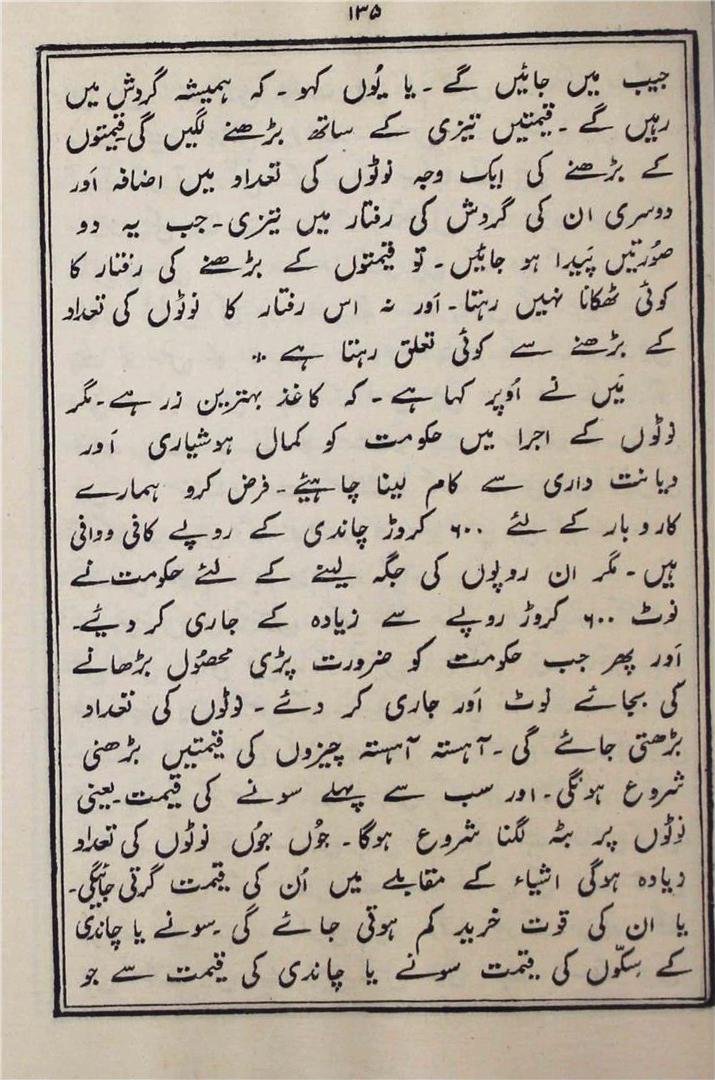 ۱۳۵
جیب میں جائیں گے ۔ یا یُوں کہو ۔ کہ ہمیشہ گردش میں
رہیں گے ۔ قیمتیں تیزی کے ساتھ بڑھنے لگیں گی قیمتوں
کے بڑھنے کی ایک وجہ نوٹوں کی تعداد میں اضافہ اَور
دوسری ان کی گردش کی رفتار میں تیزی ۔ جب یہ دو
صُورتیں پَیدا ہو جائیں ۔ تو قیمتوں کے بڑھنے کی رفتار کا
کوئی ٹھکانا نہیں رہتا ۔ اَور نہ اس رفتار کا نوٹوں کی تعداد
کے بڑھنے سے کوئی تعلق رہتا ہے ٭
مَیں نے اُوپر کہا ہے ۔ کہ کاغذ بہترین زر ہے ۔ مگر
نوٹوں کے اجرا میں حکومت کو کمال ہوشیاری اَور
دیانت داری سے کام لینا چاہیئے ۔ فرض کرو ہمارے
کاروبار کے لئے ۶۰۰ کروڑ چاندی کے روپے کافی ووافی
ہیں ۔ مگر ان روپوں کی جگہ لینے کے لئے حکومت نے
نوٹ ۶۰۰ کروڑ روپے سے زیادہ کے جاری کر دیئے۔
اَور پھر جب حکومت کو ضرورت پڑی محصُول بڑھانے
کی بجائے نوٹ اَور جاری کر دئے ۔ نوٹوں کی تعداد
بڑھتی جائے گی ۔ آہستہ آہستہ چیزوں کی قیمتیں بڑھنی
شروع ہونگی ۔ اور سب سے پہلے سونے کی قیمت ۔ یعنی
نوٹوں پر بٹہ لگنا شروع ہوگا ۔ جُوں جُوں نوٹوں کی تعداد
زیادہ ہوگی اشیاء کے مقابلے میں اُن کی قیمت گرتی جائیگی۔
یا ان کی قوت خرید کم ہوتی جائے گی ۔ سونے یا چاندی
کے سِکّوں کی قیمت سونے یا چاندی کی قیمت سے جو